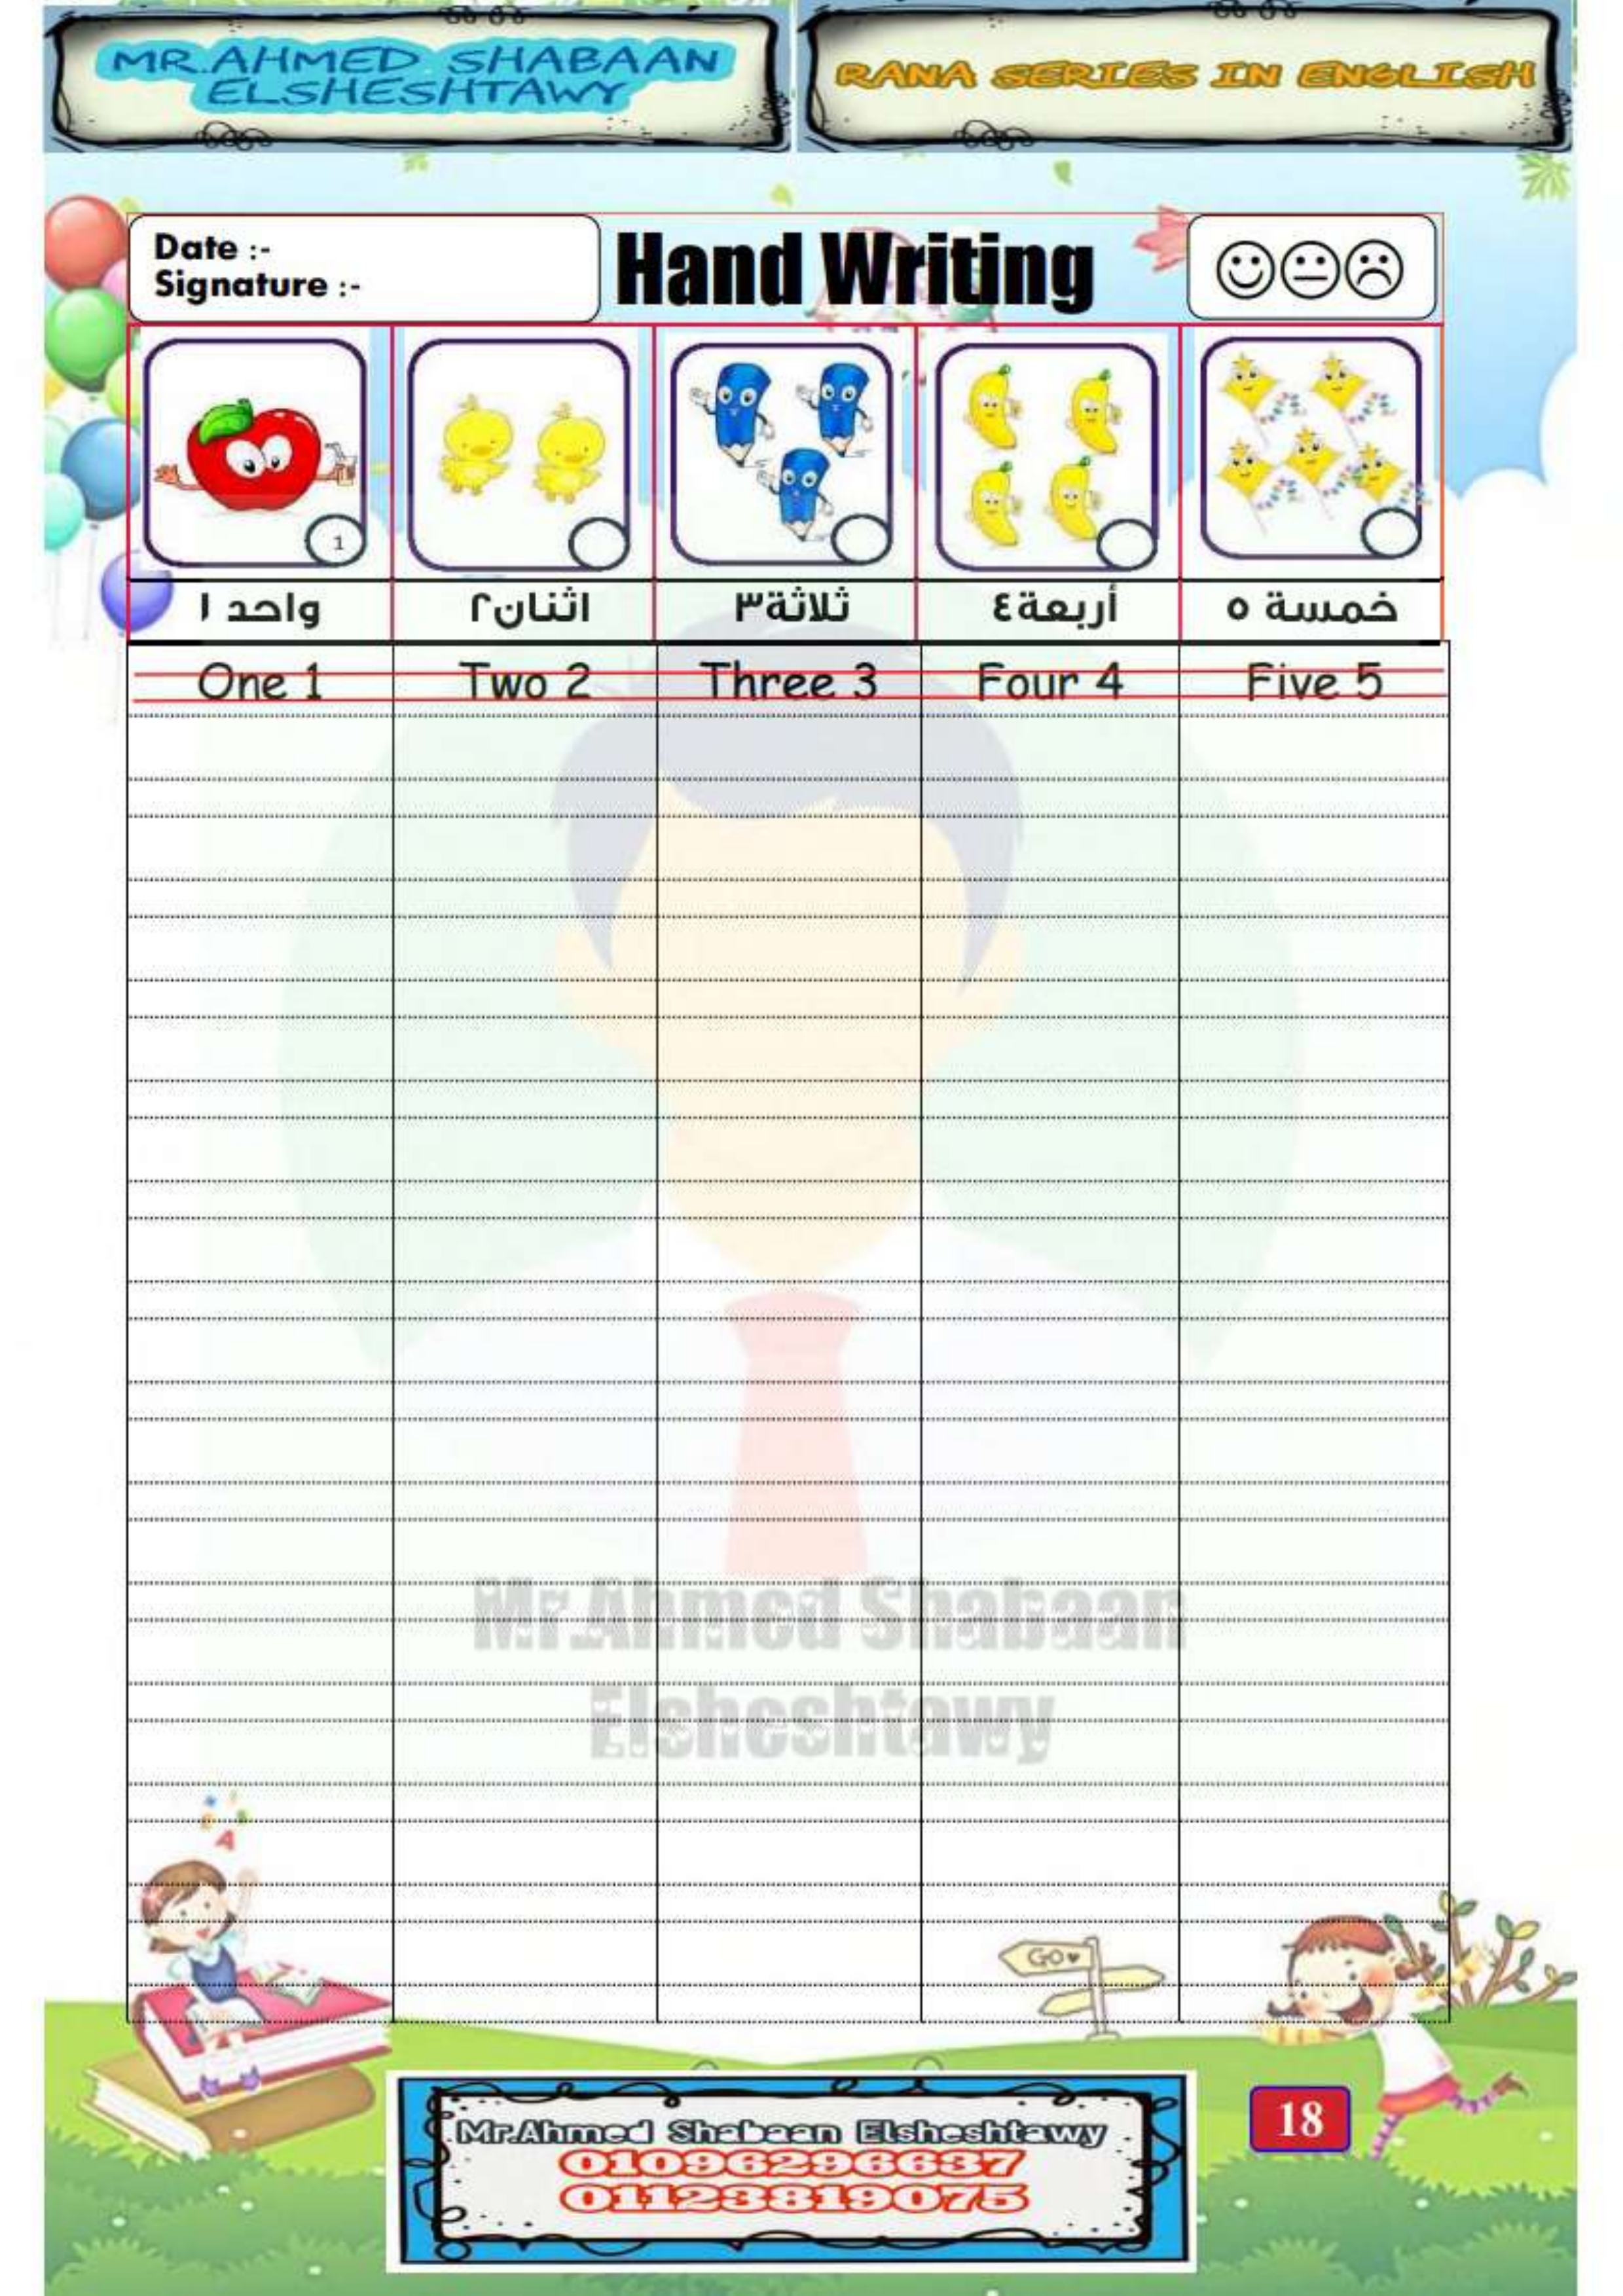 MR.AHMED SHABAAN
ELSHESHTAWY
RANA SERIES IN ENGLISH
Date :-
Signature :-
Hand Writing
1
واحد ١
اثنان٢
ثلاثة٣
أربعة٤
خمسة ٥
One 1
Two 2
Three 3
Four 4
Five 5
Mr.Ahmed Shabaan
Elsheshtawy
A
GO
Mr.Ahmed Shabaan Elsheshtawy
01096296637
01123819075
18